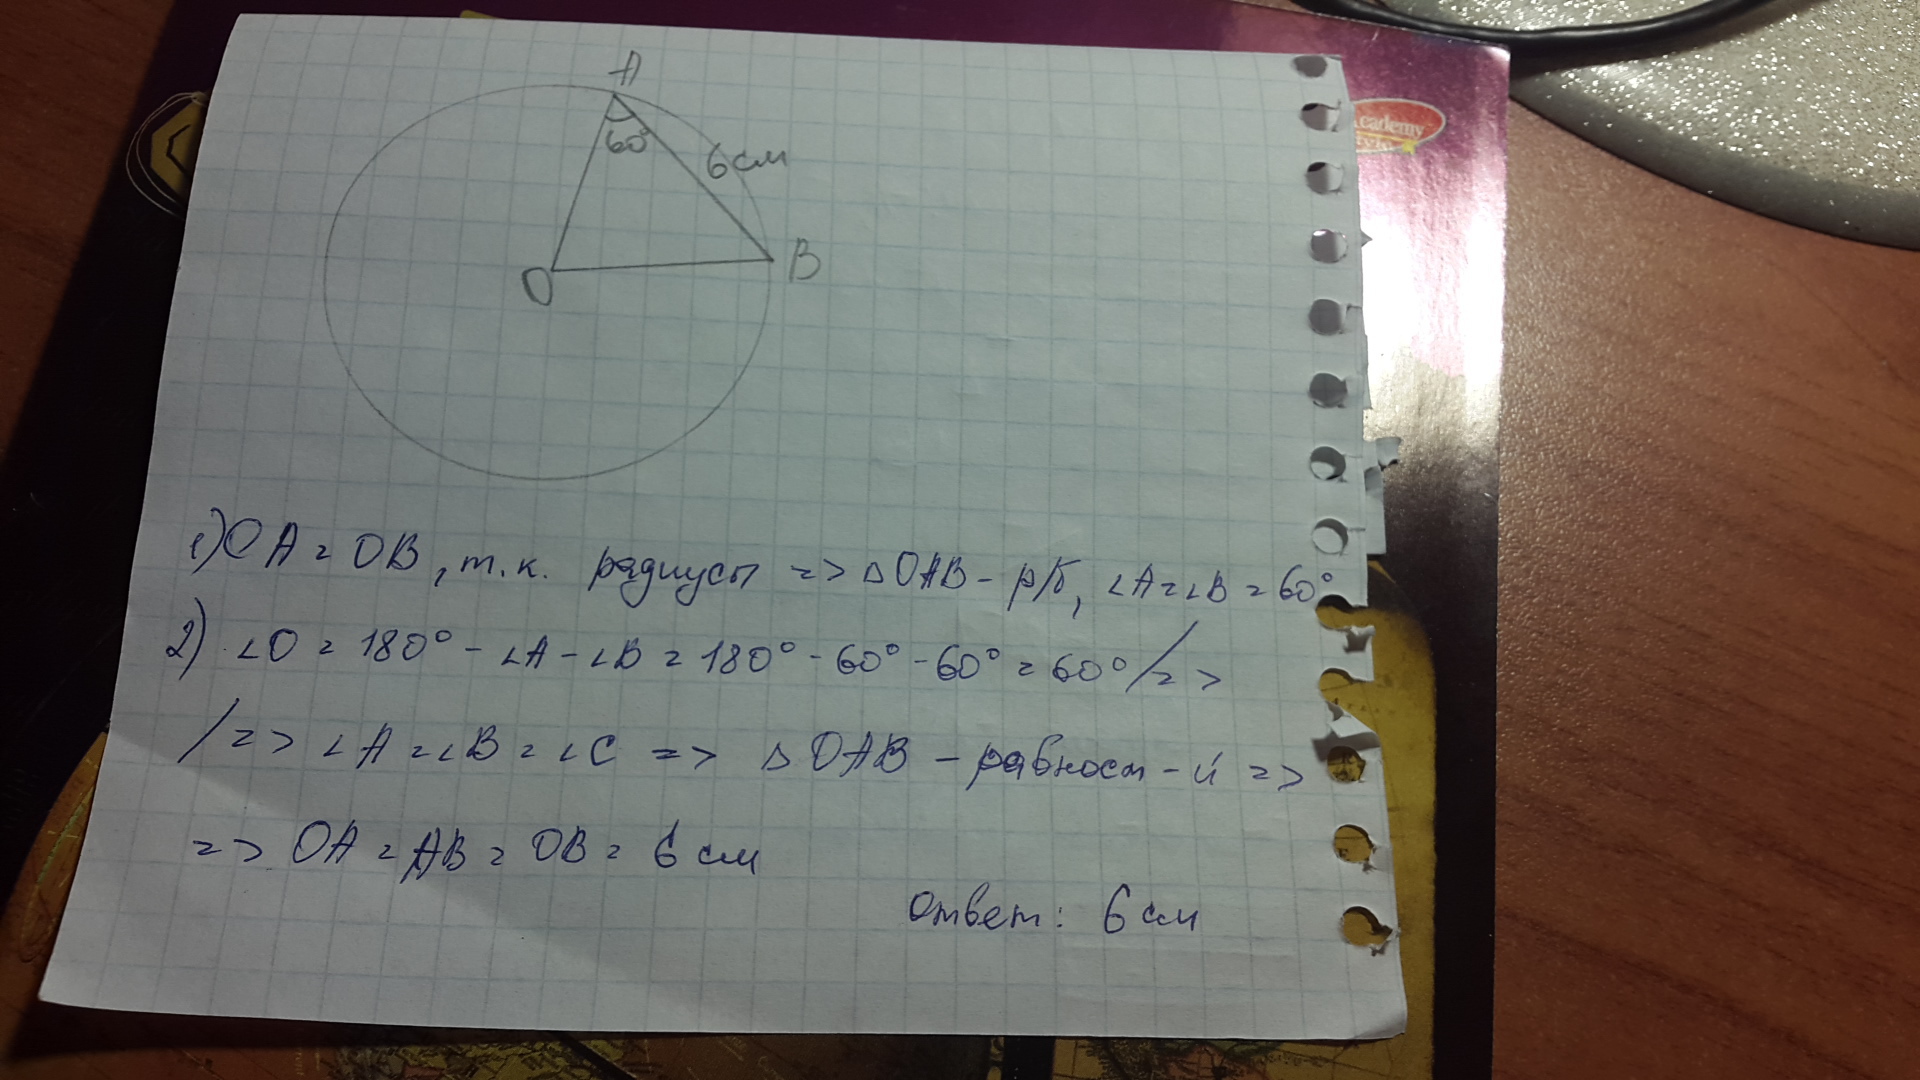 A
60°
6 см
O
B
1) OA = OB, т.к. радиусы => △OAB - р/б, ∠A=∠B = 60°
2) ∠O = 180° - ∠A - ∠B = 180° - 60° - 60° = 60° /=>
/=> ∠A=∠B=∠C => △OAB - равност-й =>
=> OA = AB = OB = 6 см
Ответ: 6 см
cademy